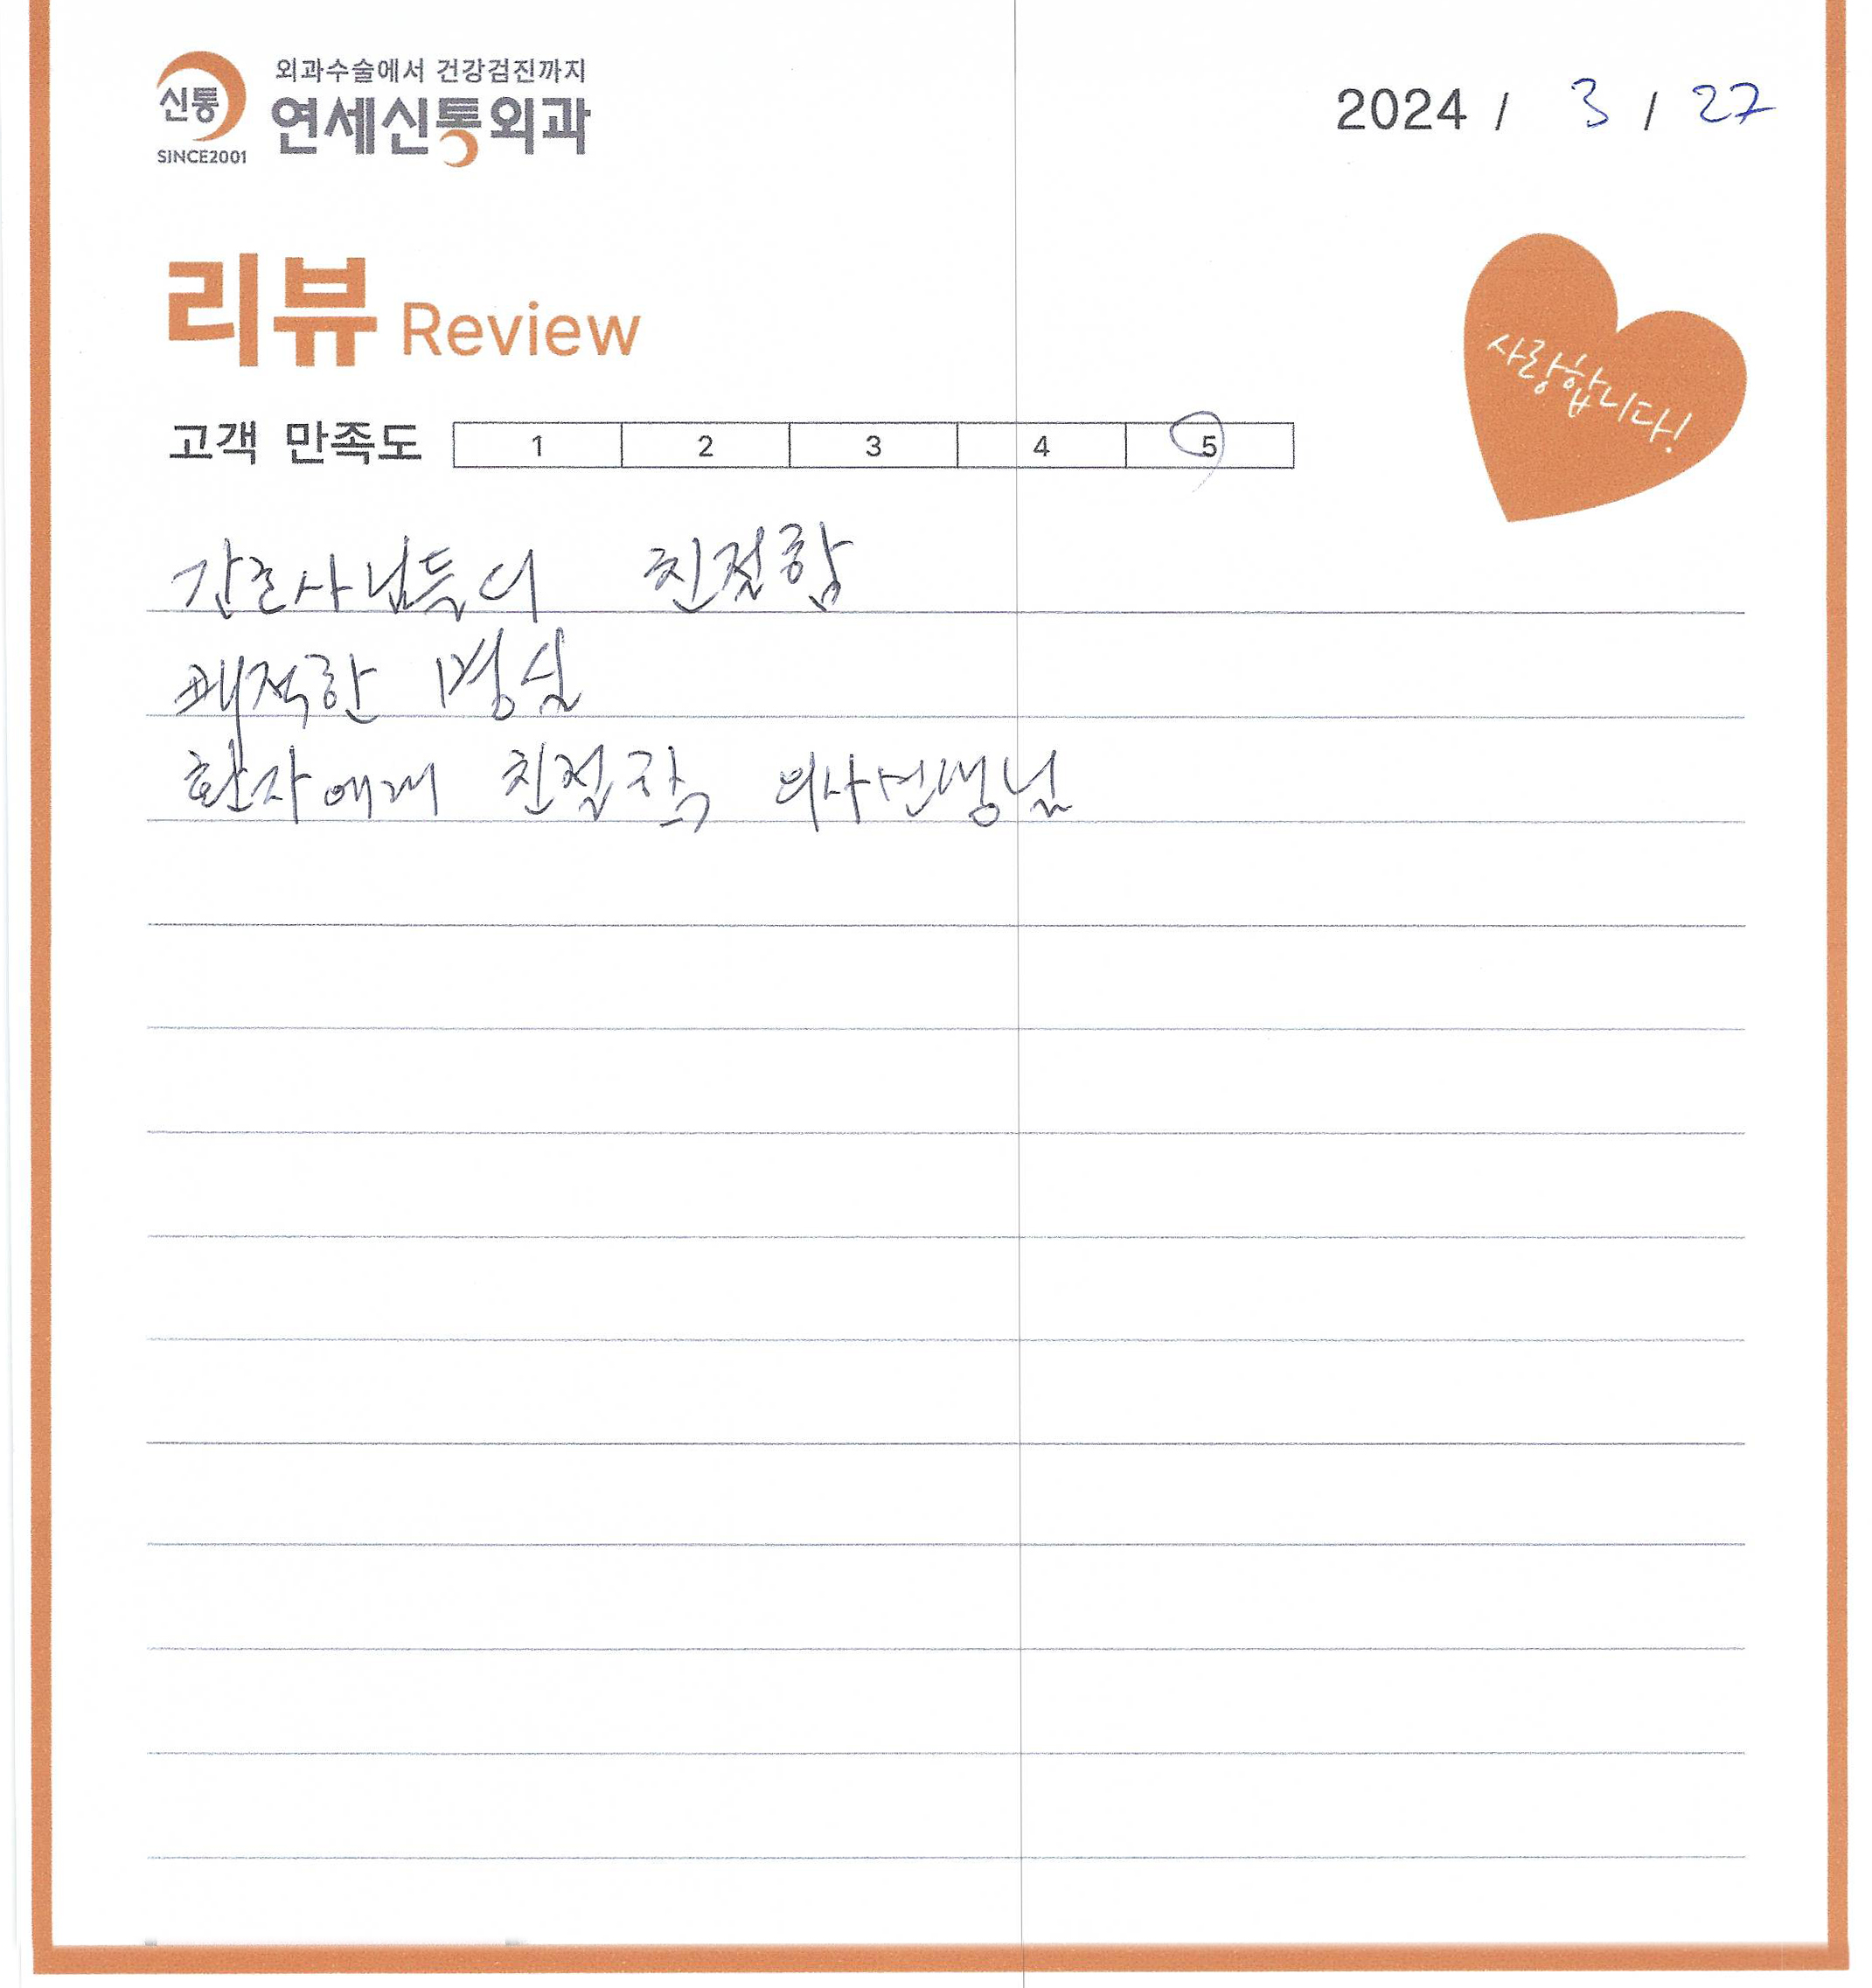 외과수술에서 건강검진까지
신통 연세신통외과
SINCE2001
2024 / 3 / 27
리뷰 Review
사랑합니다!
고객 만족도 1 2 3 4 5
간호사님들의 친절함
쾌적한 병실
환자에게 친절한 의사선생님